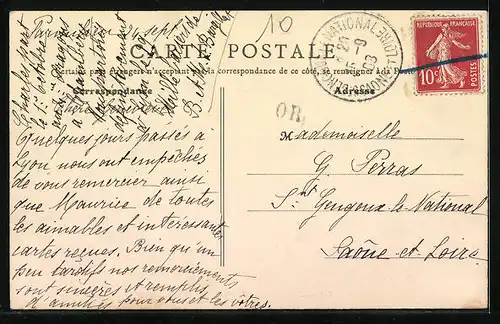 10
CARTE POSTALE
Certains pays étrangers n'acceptant pas la correspondance de ce côté, se renseigner à la Poste
Correspondance
Adresse
24 sept.
Quelques jours passés à
Lyon nous ont empêchés
de vous remercier ainsi
que Maurice de toutes
les aimables et intéressantes
cartes reçues. Bien qu'un
peu tardifs nos remerciements
sont sincères et remplis
d'amitiés pour vous et les vôtres.
Charles part
le 1er octobre
aux dragons
à
Meilleurs baisers de
OR.
Mademoiselle
G. Perras
St Gengoux-le National
Saône-et-Loire
NATIONAL
25 -9
08
10c
POSTES